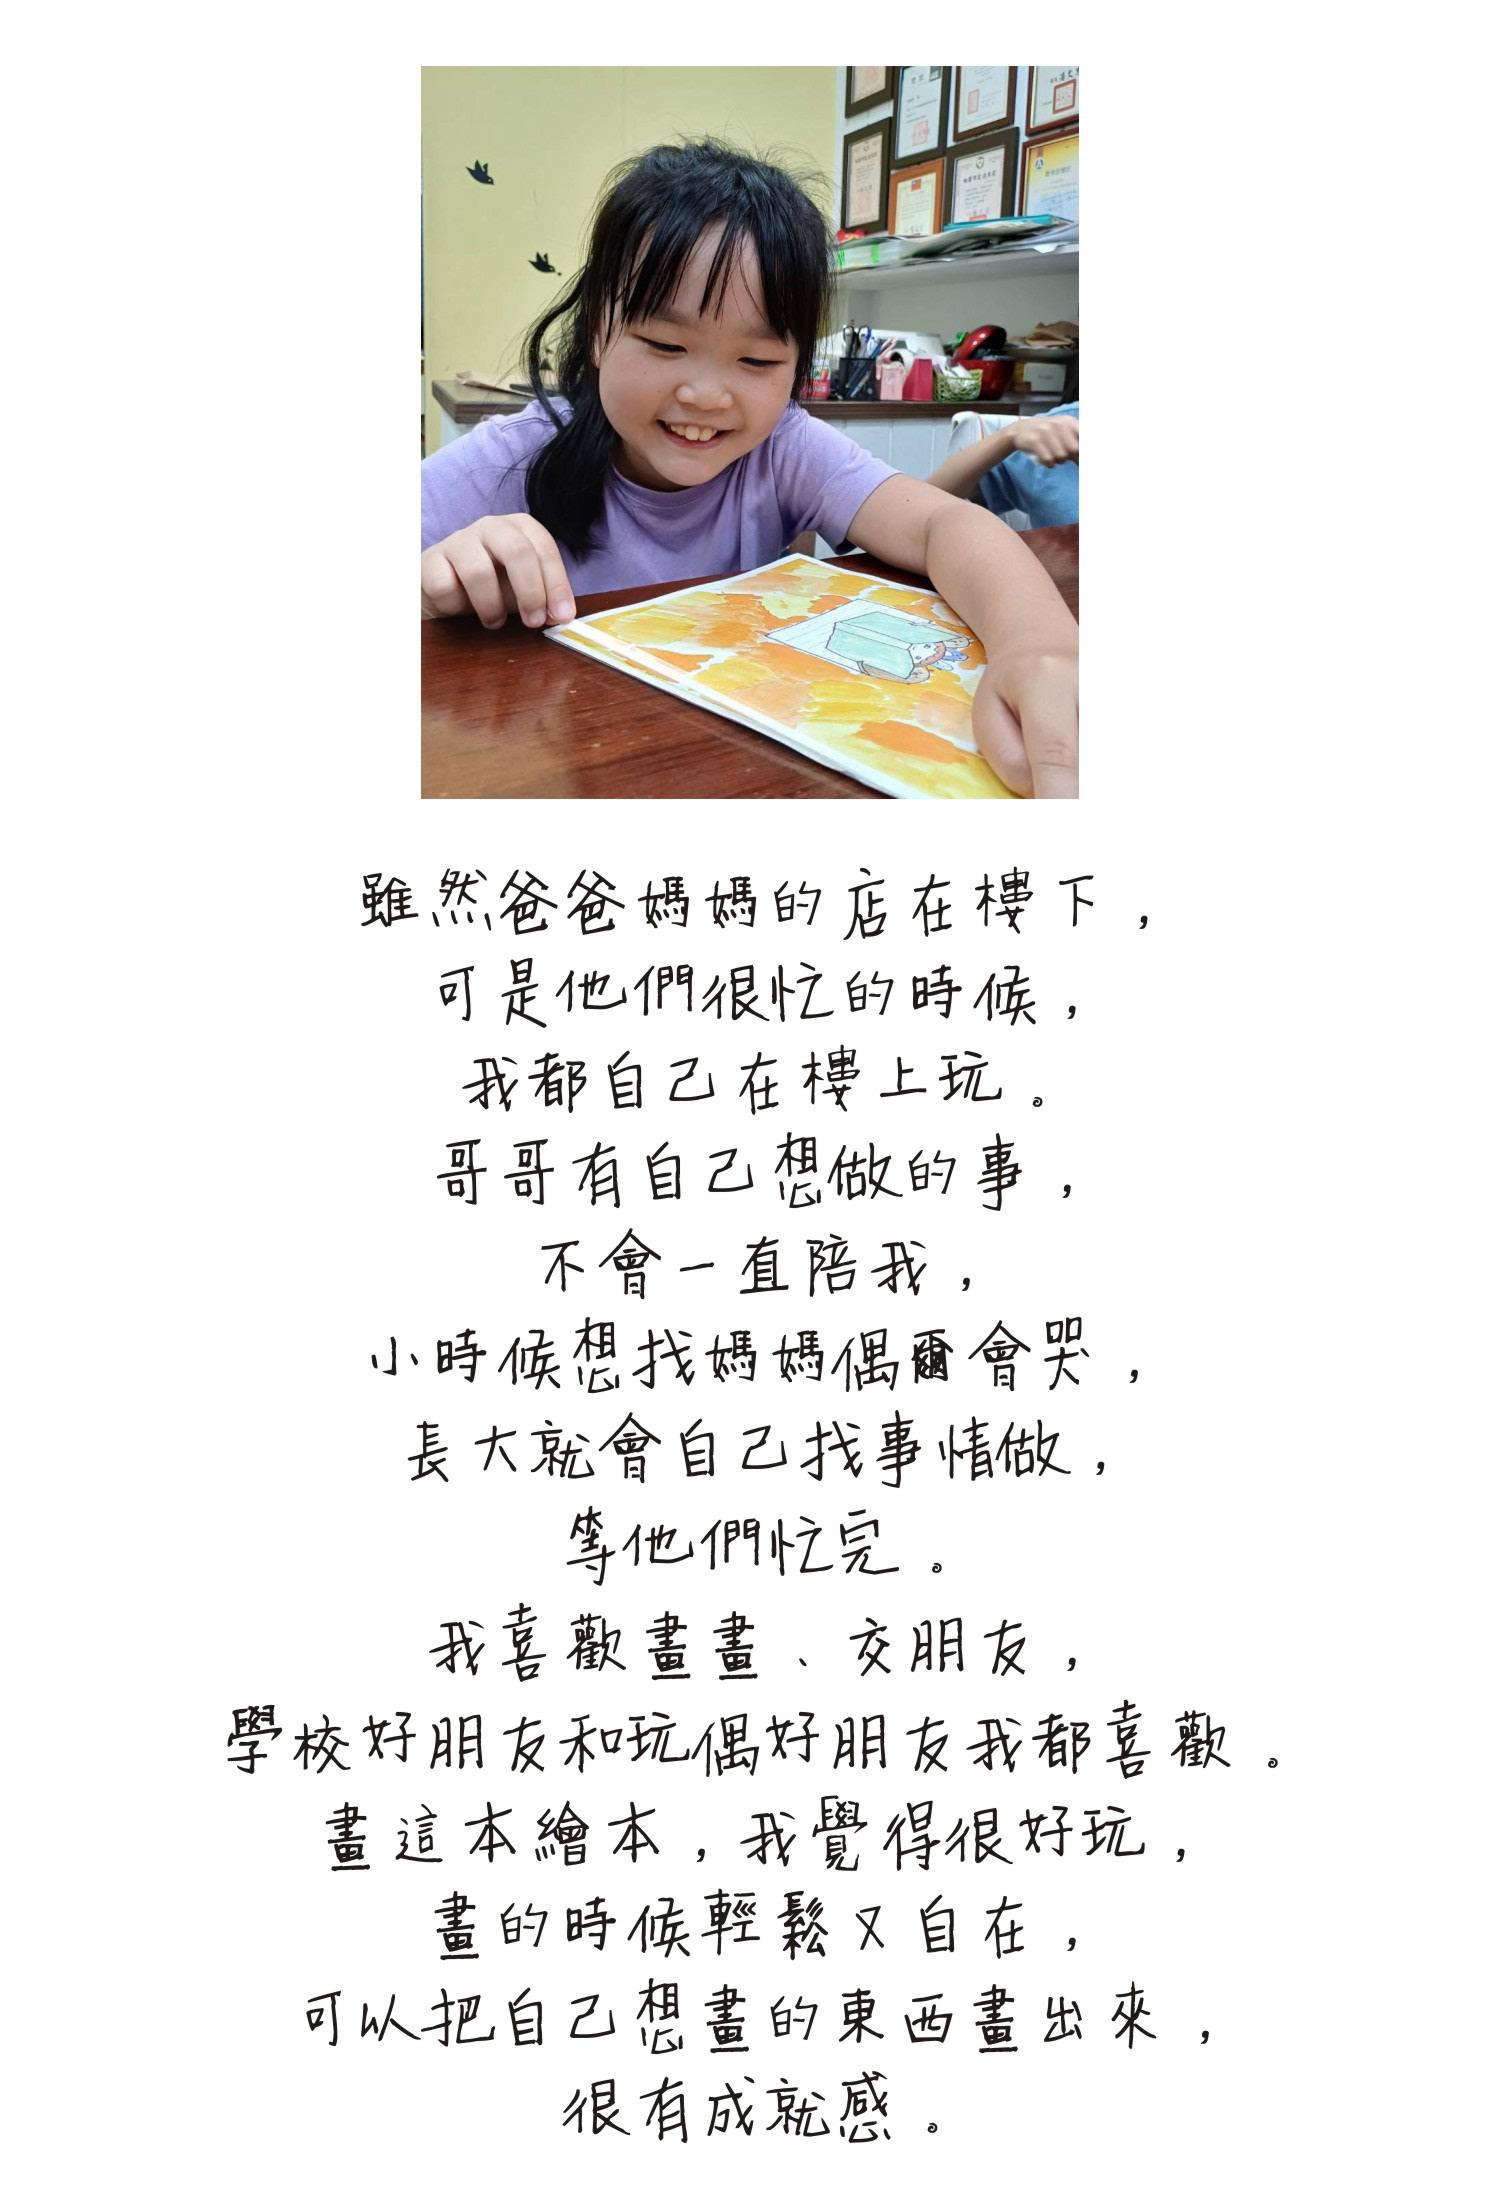 雖然爸爸媽媽的店在樓下，
可是他們很忙的時候，
我都自己在樓上玩。
哥哥有自己想做的事，
不會一直陪我，
小時候想找媽媽偶爾會哭，
長大就會自己找事情做，
等他們忙完。
我喜歡畫畫、交朋友，
學校好朋友和玩偶好朋友我都喜歡。
畫這本繪本，我覺得很好玩，
畫的時候輕鬆又自在，
可以把自己想畫的東西畫出來，
很有成就感。